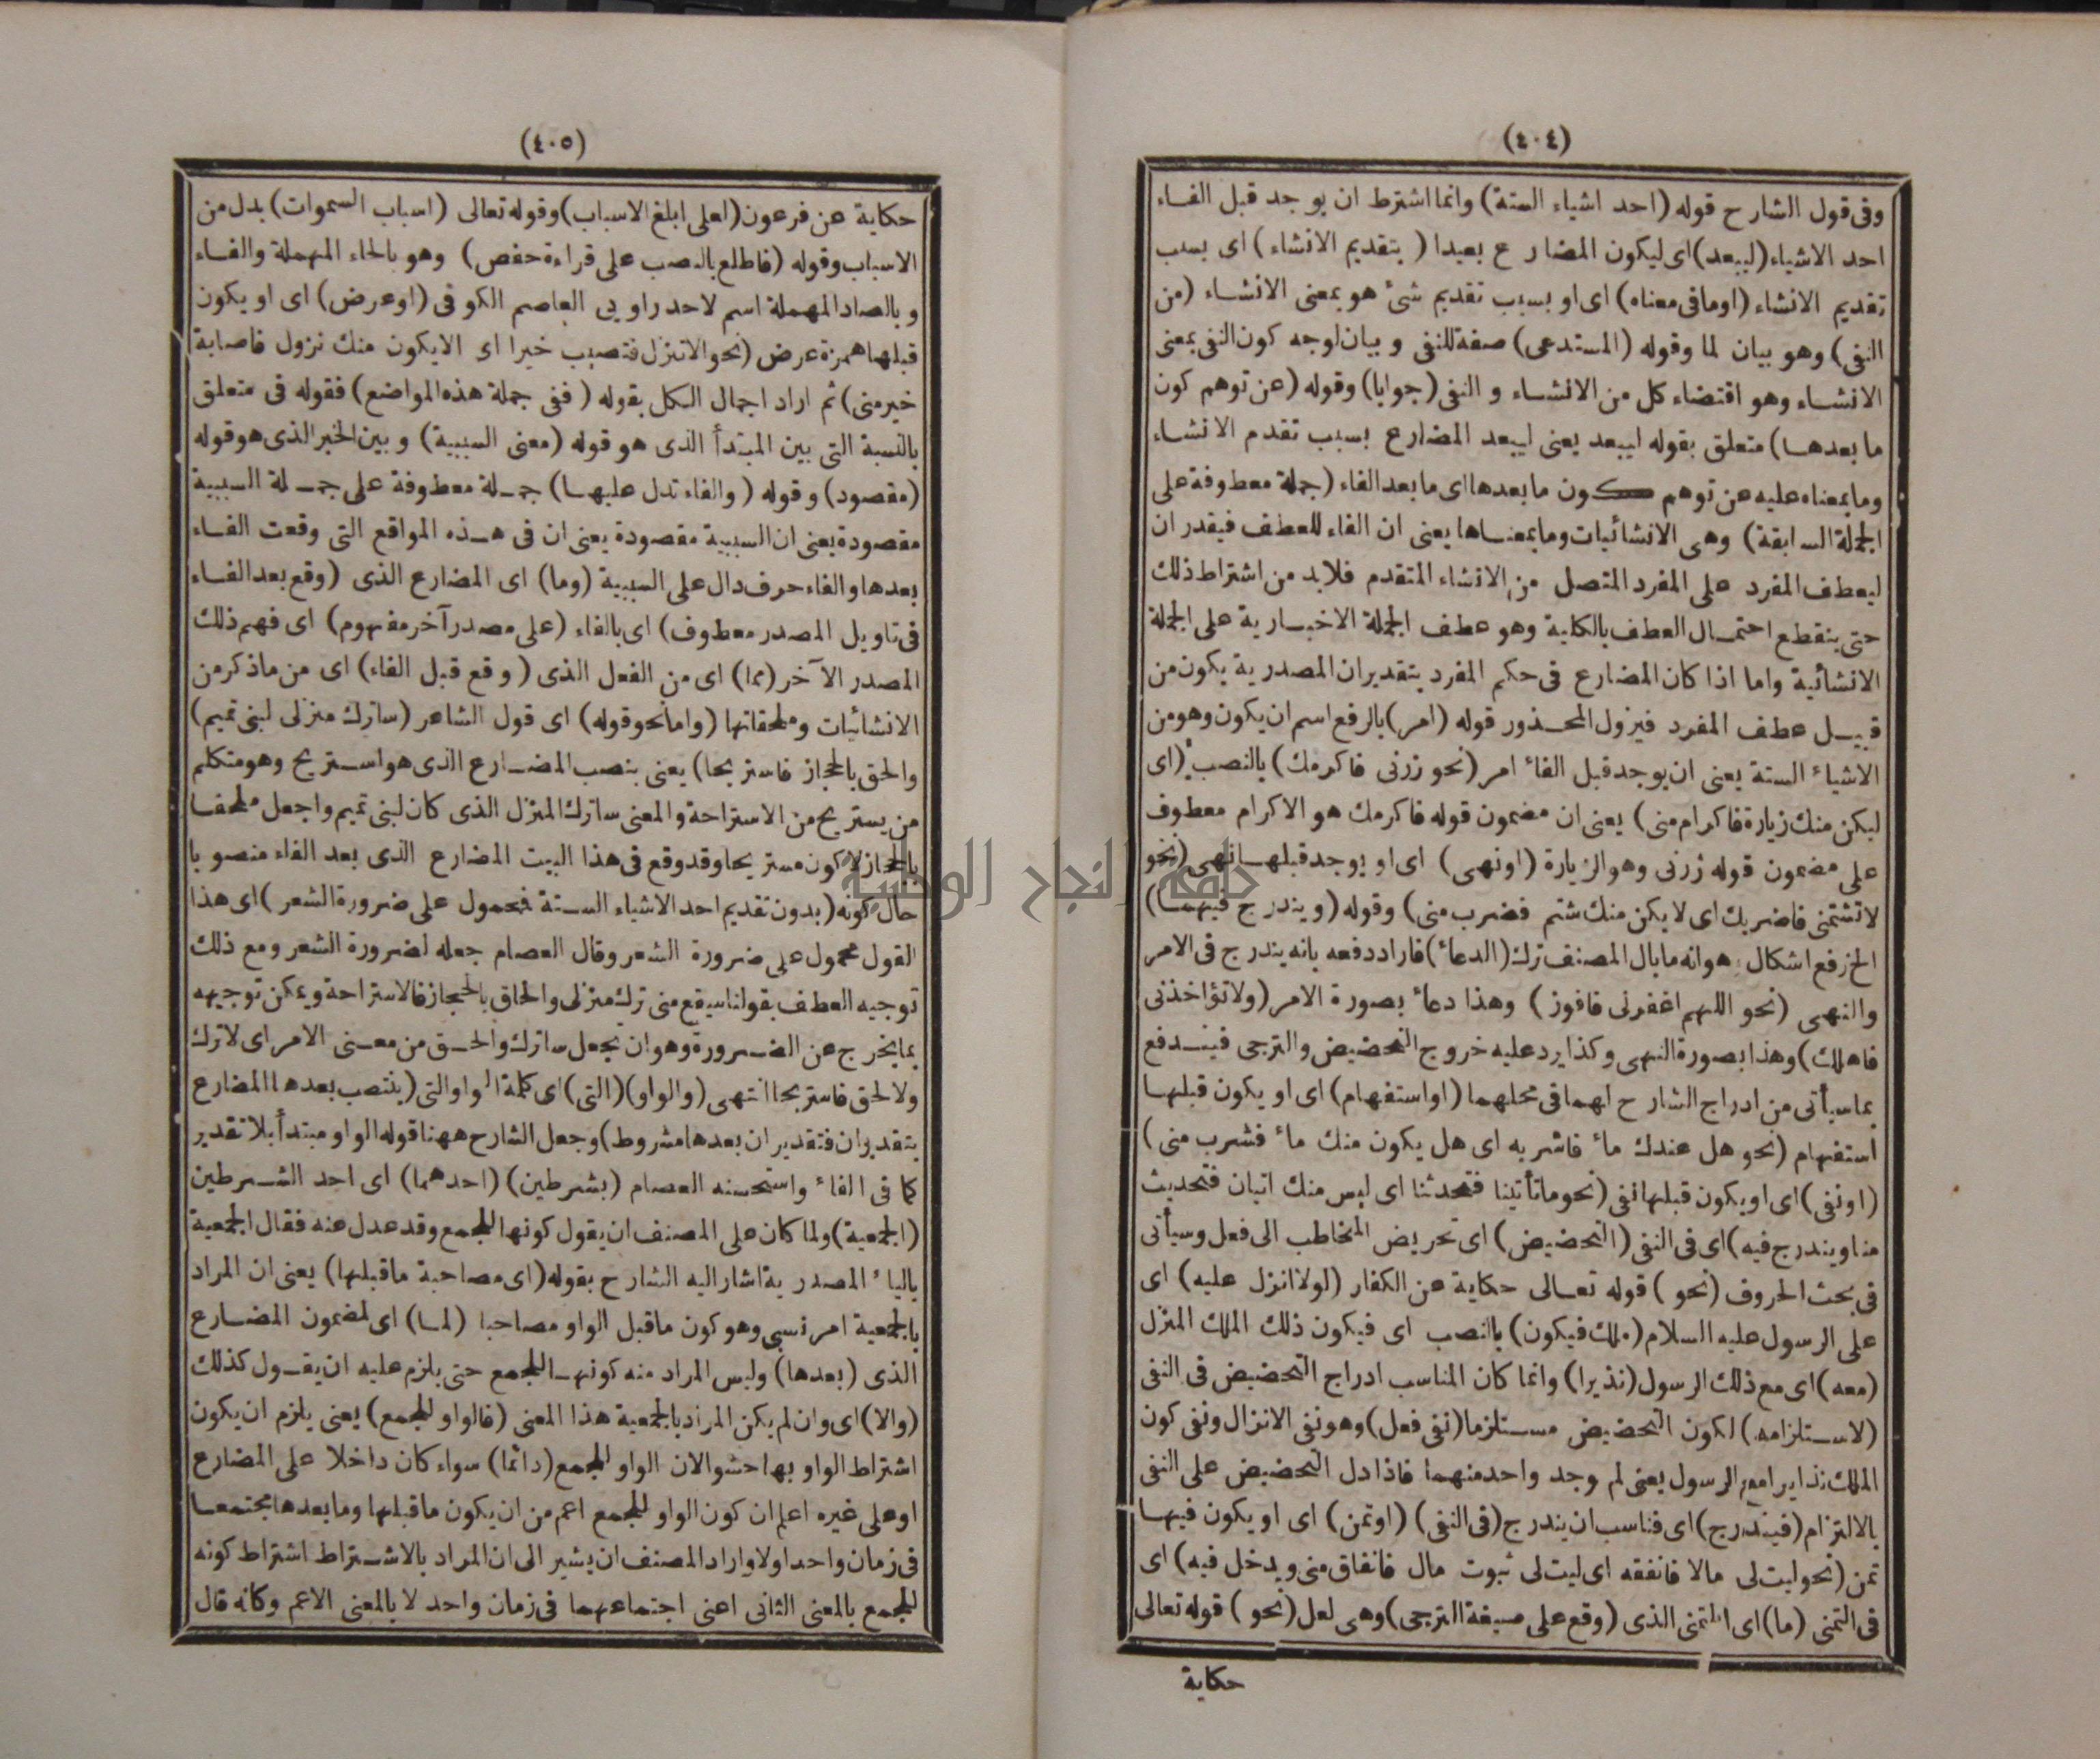 (٤٠٤)
وفى قول الشارح قوله (احد اشياء الستة) وانما اشترط ان يوجد قبل الفاء
احد الاشياء (ليبعد) اى ليكون المضارع بعيدا (بتقديم الانشاء) اى بسبب
تقديم الانشاء (اومافى معناه) اى او بسبب تقديم شئ هو بمعنى الانشاء (من
النفى) وهو بيان لما وقوله (المستدعى) صفة للنفى وبيان لوجه كون النفى بمعنى
الانشاء وهو اقتضاء كل من الانشاء والنفى (جوابا) وقوله (عن توهم كون
مابعدها) متعلق بقوله ليبعد يعنى ليبعد المضارع بسبب تقدم الانشاء
ومابمعناه عليه عن توهم كون مابعدها اى مابعد الفاء (جملة معطوفة على
الجملة السابقة) وهى الانشائيات ومابمعناها يعنى ان الفاء للعطف فيقدر ان
ليعطف المفرد على المفرد المتصل من الانشاء المتقدم فلابد من اشتراط ذلك
حتى ينقطع احتمال العطف بالكلية وهو عطف الجملة الاخبارية على الجملة
الانشائية واما اذا كان المضارع فى حكم المفرد بتقدير ان المصدرية يكون من
قبيل عطف المفرد فيزول المحذور قوله (امر) بالرفع اسم ان يكون وهو من
الاشياء الستة يعنى ان يوجد قبل الفاء امر (نحو زرنى فاكرمك) بالنصب (اى
ليكن منك زيارة فاكرام منى) يعنى ان مضمون قوله فاكرمك هو الاكرام معطوف
على مضمون قوله زرنى وهو الزيارة (اونهى) اى او يوجد قبلها نهى (نحو
لاتشتمنى فاضربك اى لايكن منك شتم فضرب منى) وقوله (ويندرج فيهما)
الخ رفع اشكال هو انه مابال المصنف ترك (الدعاء) فاراد دفعه بانه يندرج فى الامر
والنهى (نحو اللهم اغفرلى فافوز) وهذا دعاء بصورة الامر (ولاتؤاخذنى
فاهلك) وهذا بصورة النهى وكذا يرد عليه خروج التحضيض والترجى فيندفع
بماسيأتى من ادراج الشارح لهما فى محلهما (اواستفهام) اى او يكون قبلها
استفهام (نحو هل عندك ماء فاشربه اى هل يكون منك ماء فشرب منى)
(اونفى) اى او يكون قبلها نفى (نحو ماتأتينا فتحدثنا اى ليس منك اتيان فتحديث
منا ويندرج فيه) اى فى النفى (التحضيض) اى تحريض المخاطب الى فعل وسيأتى
فى بحث الحروف (نحو) قوله تعالى حكاية عن الكفار (لولا انزل عليه) اى
على الرسول عليه السلام (ملك فيكون) بالنصب اى فيكون ذلك الملك المنزل
(معه) اى مع ذلك الرسول (نذيرا) وانما كان المناسب ادراج التحضيض فى النفى
(لاستلزامه) لكون التحضيض مستلزما (نفى فعل) وهو نفى الانزال ونفى كون
الملك نذيرا مع الرسول يعنى لم وجد واحد منهما فاذا دل التحضيض على النفى
بالالتزام (فيندرج) اى فناسب ان يندرج (فى النفى) (اوتمن) اى او يكون فيها
تمن (نحوليت لى مالا فانفقه اى ليت لى ثبوت مال فانفاق منى ويدخل فيه) اى
فى التمنى (ما) اى المتمنى الذى (وقع على صيغة الترجى) وهى لعل (نحو) قوله تعالى
حكاية
(٤٠٥)
حكاية عن فرعون (لعلى ابلغ الاسباب) وقوله تعالى (اسباب السموات) بدل من
الاسباب وقوله (فاطلع بالنصب على قراءة حفص) وهو بالحاء المهملة والفاء
وبالصاد المهملة اسم لاحد راويى العاصم الكوفى (اوعرض) اى او يكون
قبلها همزة عرض (نحو الاتنزل فتصيب خيرا اى الايكون منك نزول فاصابة
خير منى) ثم اراد اجمال الكل بقوله (ففى جملة هذه المواضع) فقوله فى متعلق
بالنسبة التى بين المبتدأ الذى هو قوله (معنى السببية) وبين الخبر الذى هو قوله
(مقصود) وقوله (والفاء تدل عليها) جملة معطوفة على جملة السببية
مقصودة يعنى ان السببية مقصودة يعنى ان فى هذه المواقع التى وقعت الفاء
بعدها والفاء حرف دال على السببية (وما) اى المضارع الذى (وقع بعد الفاء
فى تاويل المصدر معطوف) اى بالفاء (على مصدر آخر مفهوم) اى فهم ذلك
المصدر الآخر (مما) اى من الفعل الذى (وقع قبل الفاء) اى من ماذكر من
الانشائيات وملحقاتها (واما نحو قوله) اى قول الشاعر (ساترك منزلى لبنى تميم)
والحق بالحجاز فاستريحا) يعنى بنصب المضارع الذى هو استريح وهو متكلم
من يستريح من الاستراحة والمعنى ساترك المنزل الذى كان لبنى تميم واجعل ملحقا
بالحجاز لاكون مستريحا وقد وقع فى هذا البيت المضارع الذى بعد الفاء منصوبا
حال كونه (بدون تقديم احد الاشياء الستة فمحمول على ضرورة الشعر) اى هذا
القول محمول على ضرورة الشعر وقال العصام جعله لضرورة الشعر ومع ذلك
توجيه العطف بقولنا سيقع منى ترك منزلى والحاق بالحجاز فالاستراحة ويمكن توجيهه
بمايخرج عن الضرورة وهو ان يجعل ساترك والحق من معنى الامر اى لاترك
ولالحق فاستريحا انتهى (والواو) (التى) اى كلمة الواو التى (ينتصب بعدها المضارع
بتقدير ان فتقدير ان بعدها مشروط) وجعل الشارح ههنا قوله الواو مبتدأ بلا تقدير
كما فى الفاء واستحسنه العصام (بشرطين) (احدهما) اى احد الشرطين
(الجمعية) ولما كان على المصنف ان يقول كونها للجمع وقد عدل عنه فقال الجمعية
بالياء المصدرية اشار اليه الشارح بقوله (اى مصاحبة ماقبلها) يعنى ان المراد
بالجمعية امر نسبى وهو كون ماقبل الواو مصاحبا (لما) اى لمضمون المضارع
الذى (بعدها) وليس المراد منه كونها للجمع حتى يلزم عليه ان يقول كذلك
(والا) اى وان لم يكن المراد بالجمعية هذا المعنى (فالواو للجمع) يعنى يلزم ان يكون
اشتراط الواو بها حشوا لان الواو للجمع (دائما) سواء كان داخلا على المضارع
اوعلى غيره اعلم ان كون الواو للجمع اعم من ان يكون ماقبلها ومابعدها مجتمعا
فى زمان واحد اولا واراد المصنف ان يشير الى ان المراد بالاشتراط اشتراط كونه
للجمع بالمعنى الثانى اعنى اجتماعهما فى زمان واحد لا بالمعنى الاعم وكانه قال
جامعة النجاح الوطنية